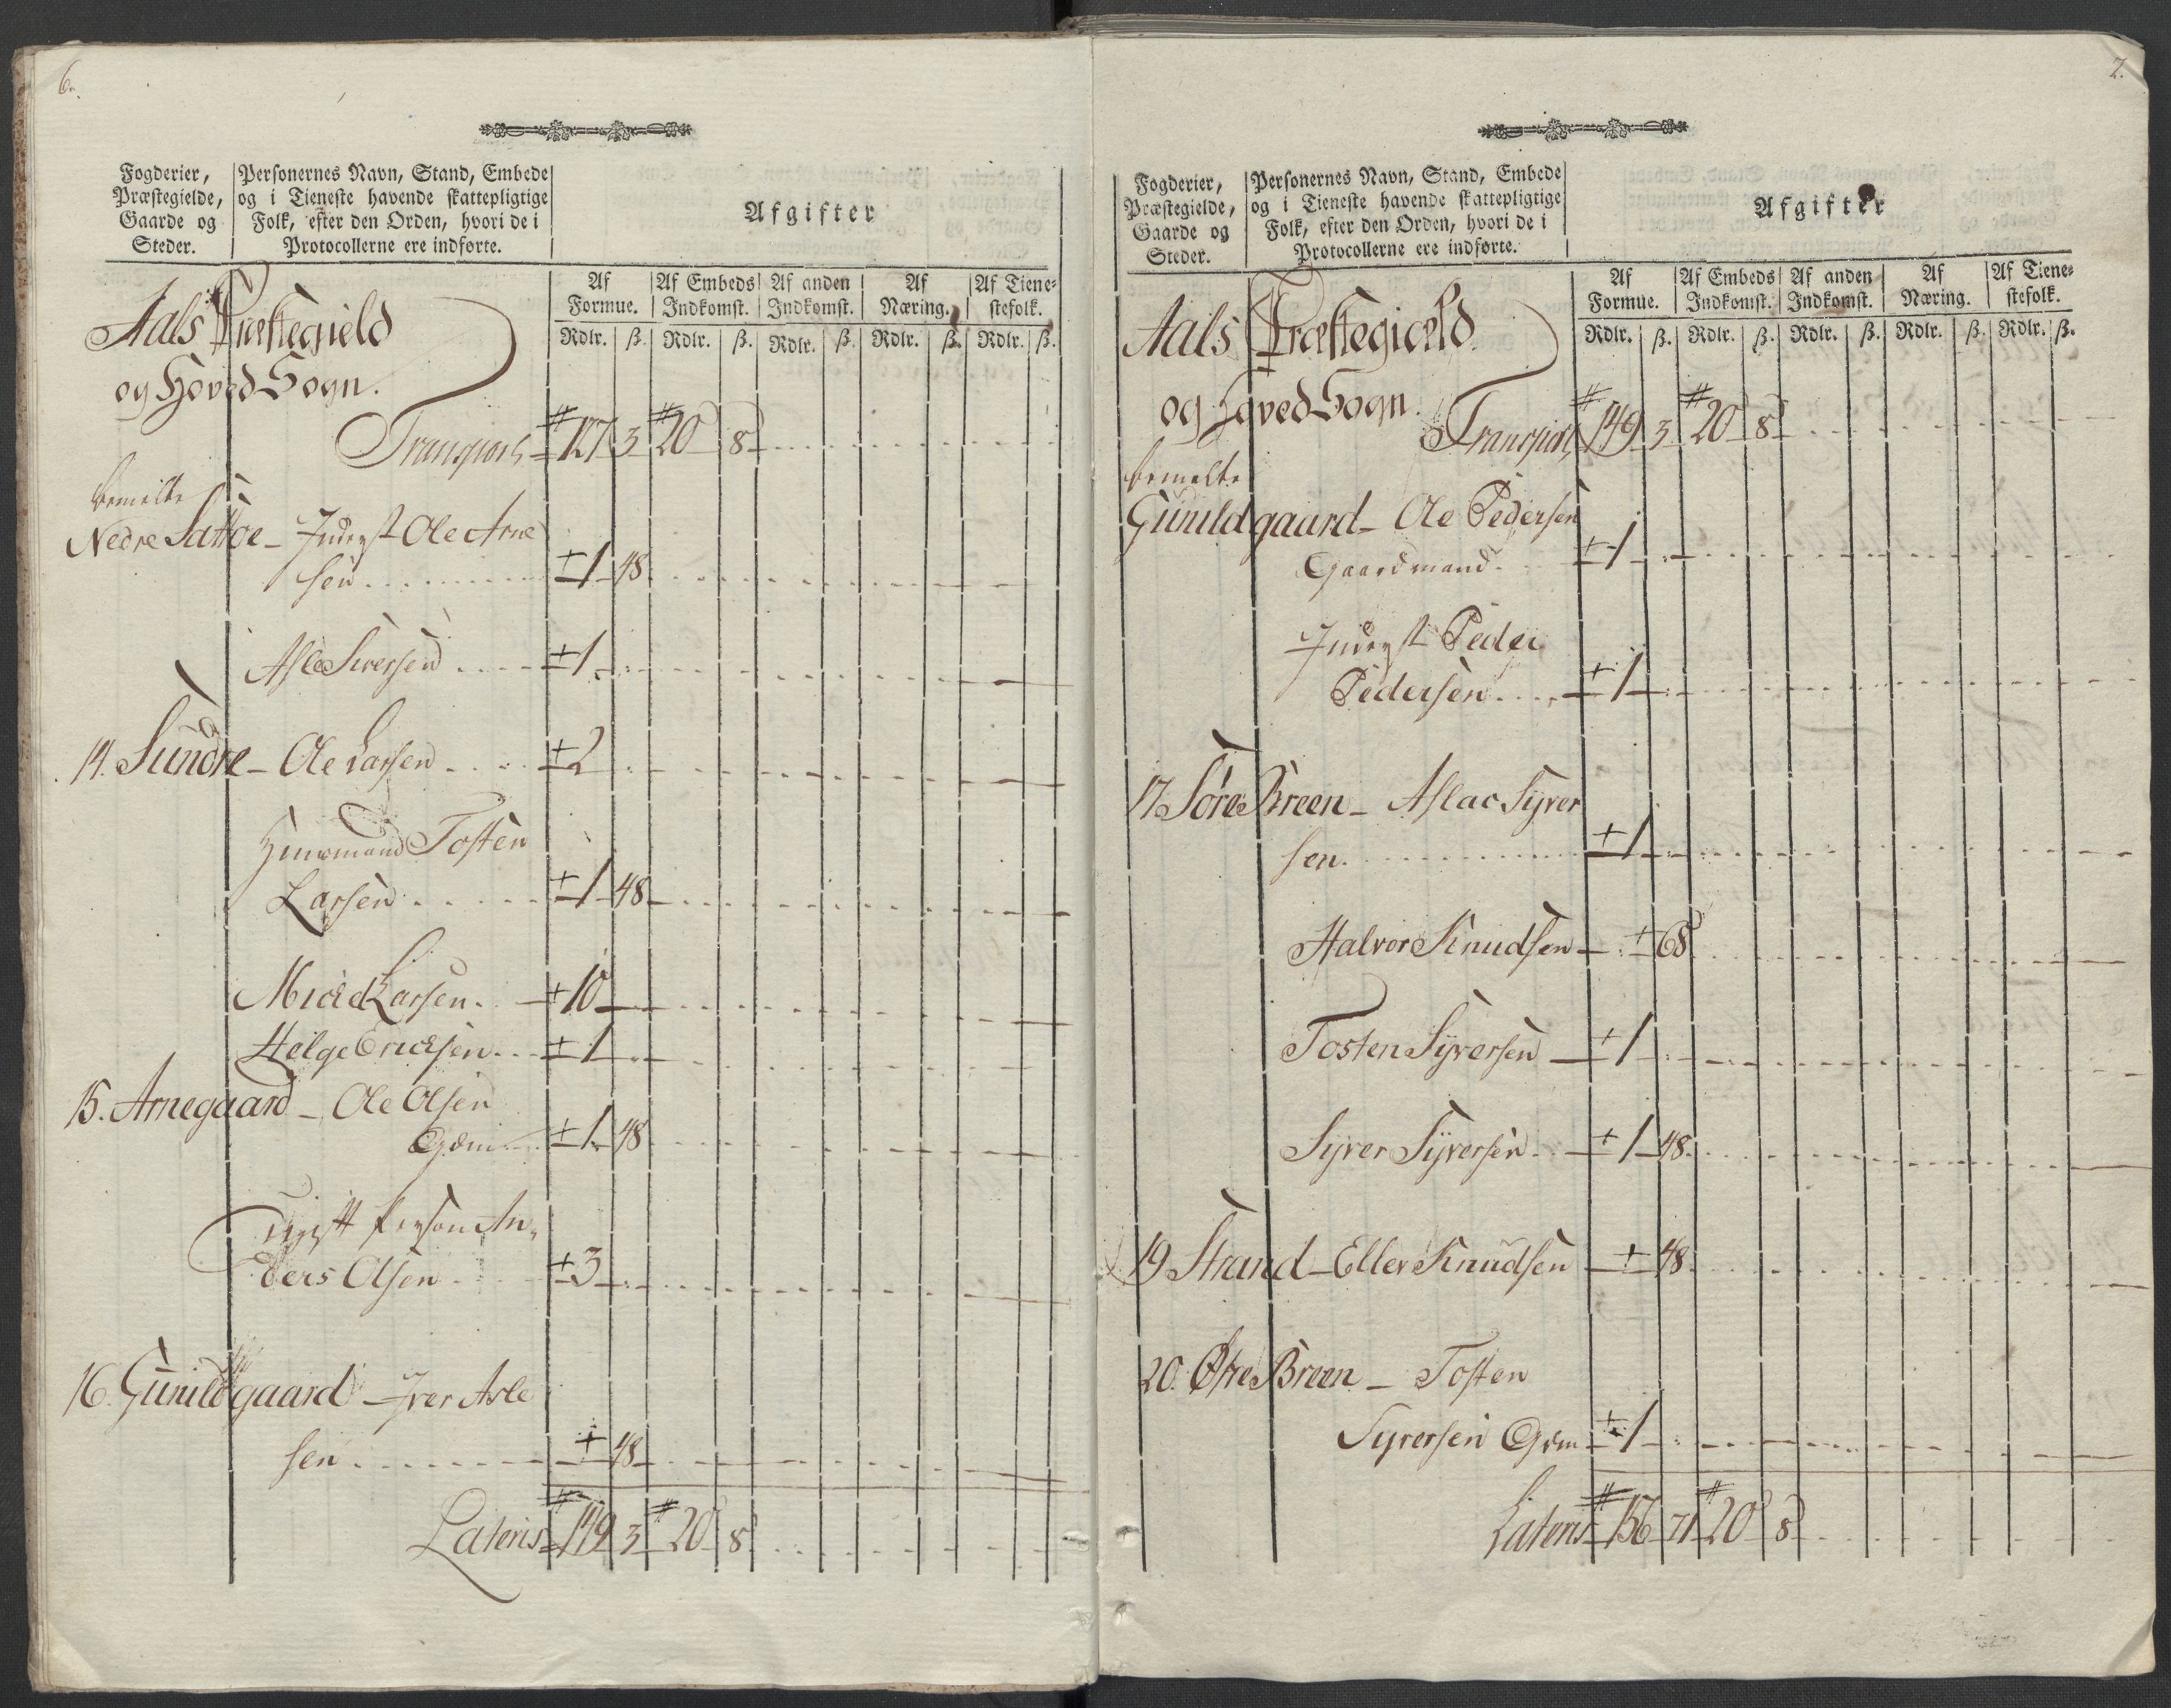 6.
Fogderier, Præstegielde, Gaarde og Steder.
Personernes Navn, Stand, Embede og i Tieneste havende skattepligtige Folk, efter den Orden, hvori de i Protocollerne ere indførte.
Afgifter
Af Formue. Af Embeds Indkomst. Af anden Indkomst. Af Næring. Af Tienestefolk.
Rdlr. ß. Rdlr. ß. Rdlr. ß. Rdlr. ß. Rdlr. ß.
Aals Præstegield
og Hoved Sogn.
Transport 127 3 20 8
bemelte
Nedre Sattoe - Inderst Ole Arne
sen 1 48
Asle Sversen 1
14. Sundre - Ole Larsen 2
Huusmand Tosten
Larsen 1 48
Mickel Larsen 10
Helge Ericksen 1
15. Arnegaard - Ole Olsen
Gdm 1 48
Person An,
ders Olsen 3
16. Gunildgaard - Iver Asle
sen 48
Lateris 149 3 20 8
7.
Fogderier, Præstegielde, Gaarde og Steder.
Personernes Navn, Stand, Embede og i Tieneste havende skattepligtige Folk, efter den Orden, hvori de i Protocollerne ere indførte.
Afgifter
Af Formue. Af Embeds Indkomst. Af anden Indkomst. Af Næring. Af Tienestefolk.
Rdlr. ß. Rdlr. ß. Rdlr. ß. Rdlr. ß. Rdlr. ß.
Aals Præstegield
og Hoved Sogn.
Transport 149 3 20 8
bemelte
Gunildgaard - Ole Pedersen
Gaardmand 1
Inderst Peder
Pedersen 1
17 Søre Breen - Aslac Syver
sen. 1
Halvor Knudsen 68
Tosten Syversen 1
Syver Syversen 1 48
19 Strand - Eller Knudsen 48
20. Østre Breen - Tosten
Syversen Gdm 1
Lateris 156 71 20 8